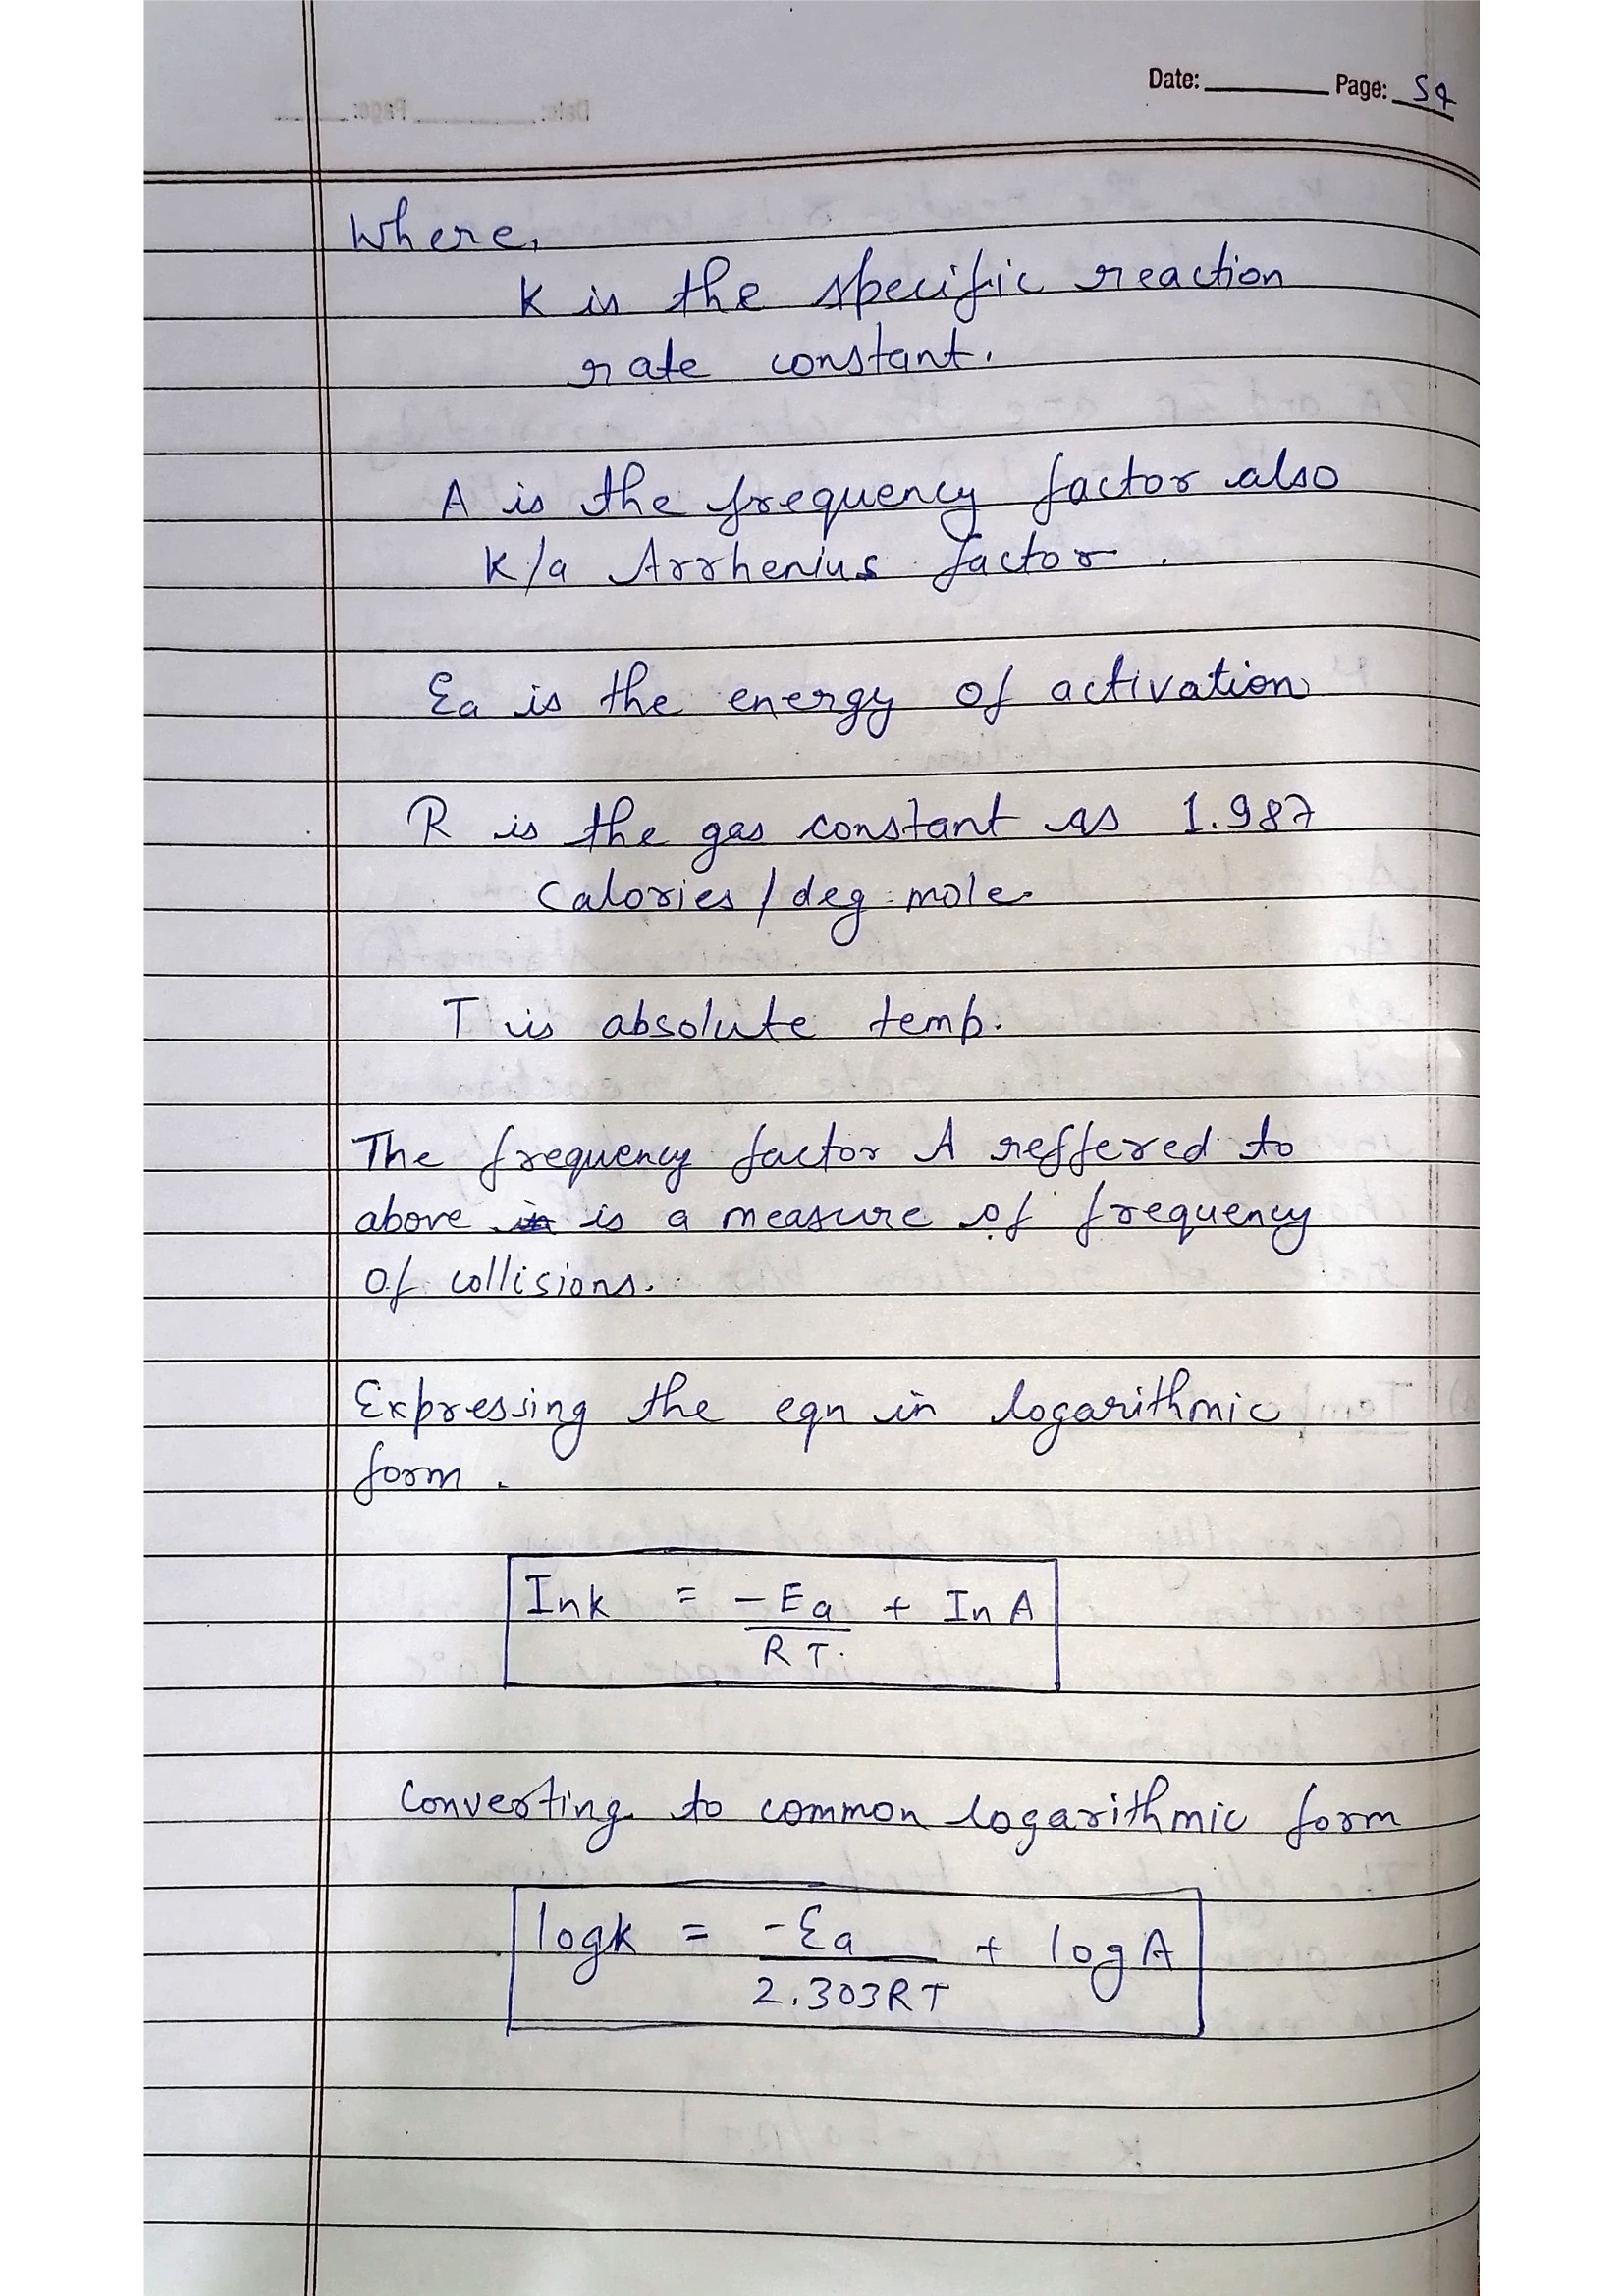 Date: Page: 59
Where,
K is the specific reaction
rate constant.
A is the frequency factor also
K/a Arrhenius factor.
Ea is the energy of activation
R is the gas constant as 1.987
Calories/deg. mole.
T is absolute temp.
The frequency factor A reffered to
above is a measure of frequency
of collisions.
Expressing the eqn in logarithmic
form.
Ink = -Ea/RT. + In A
Converting to common logarithmic form
logk = -Ea/2.303RT + log A